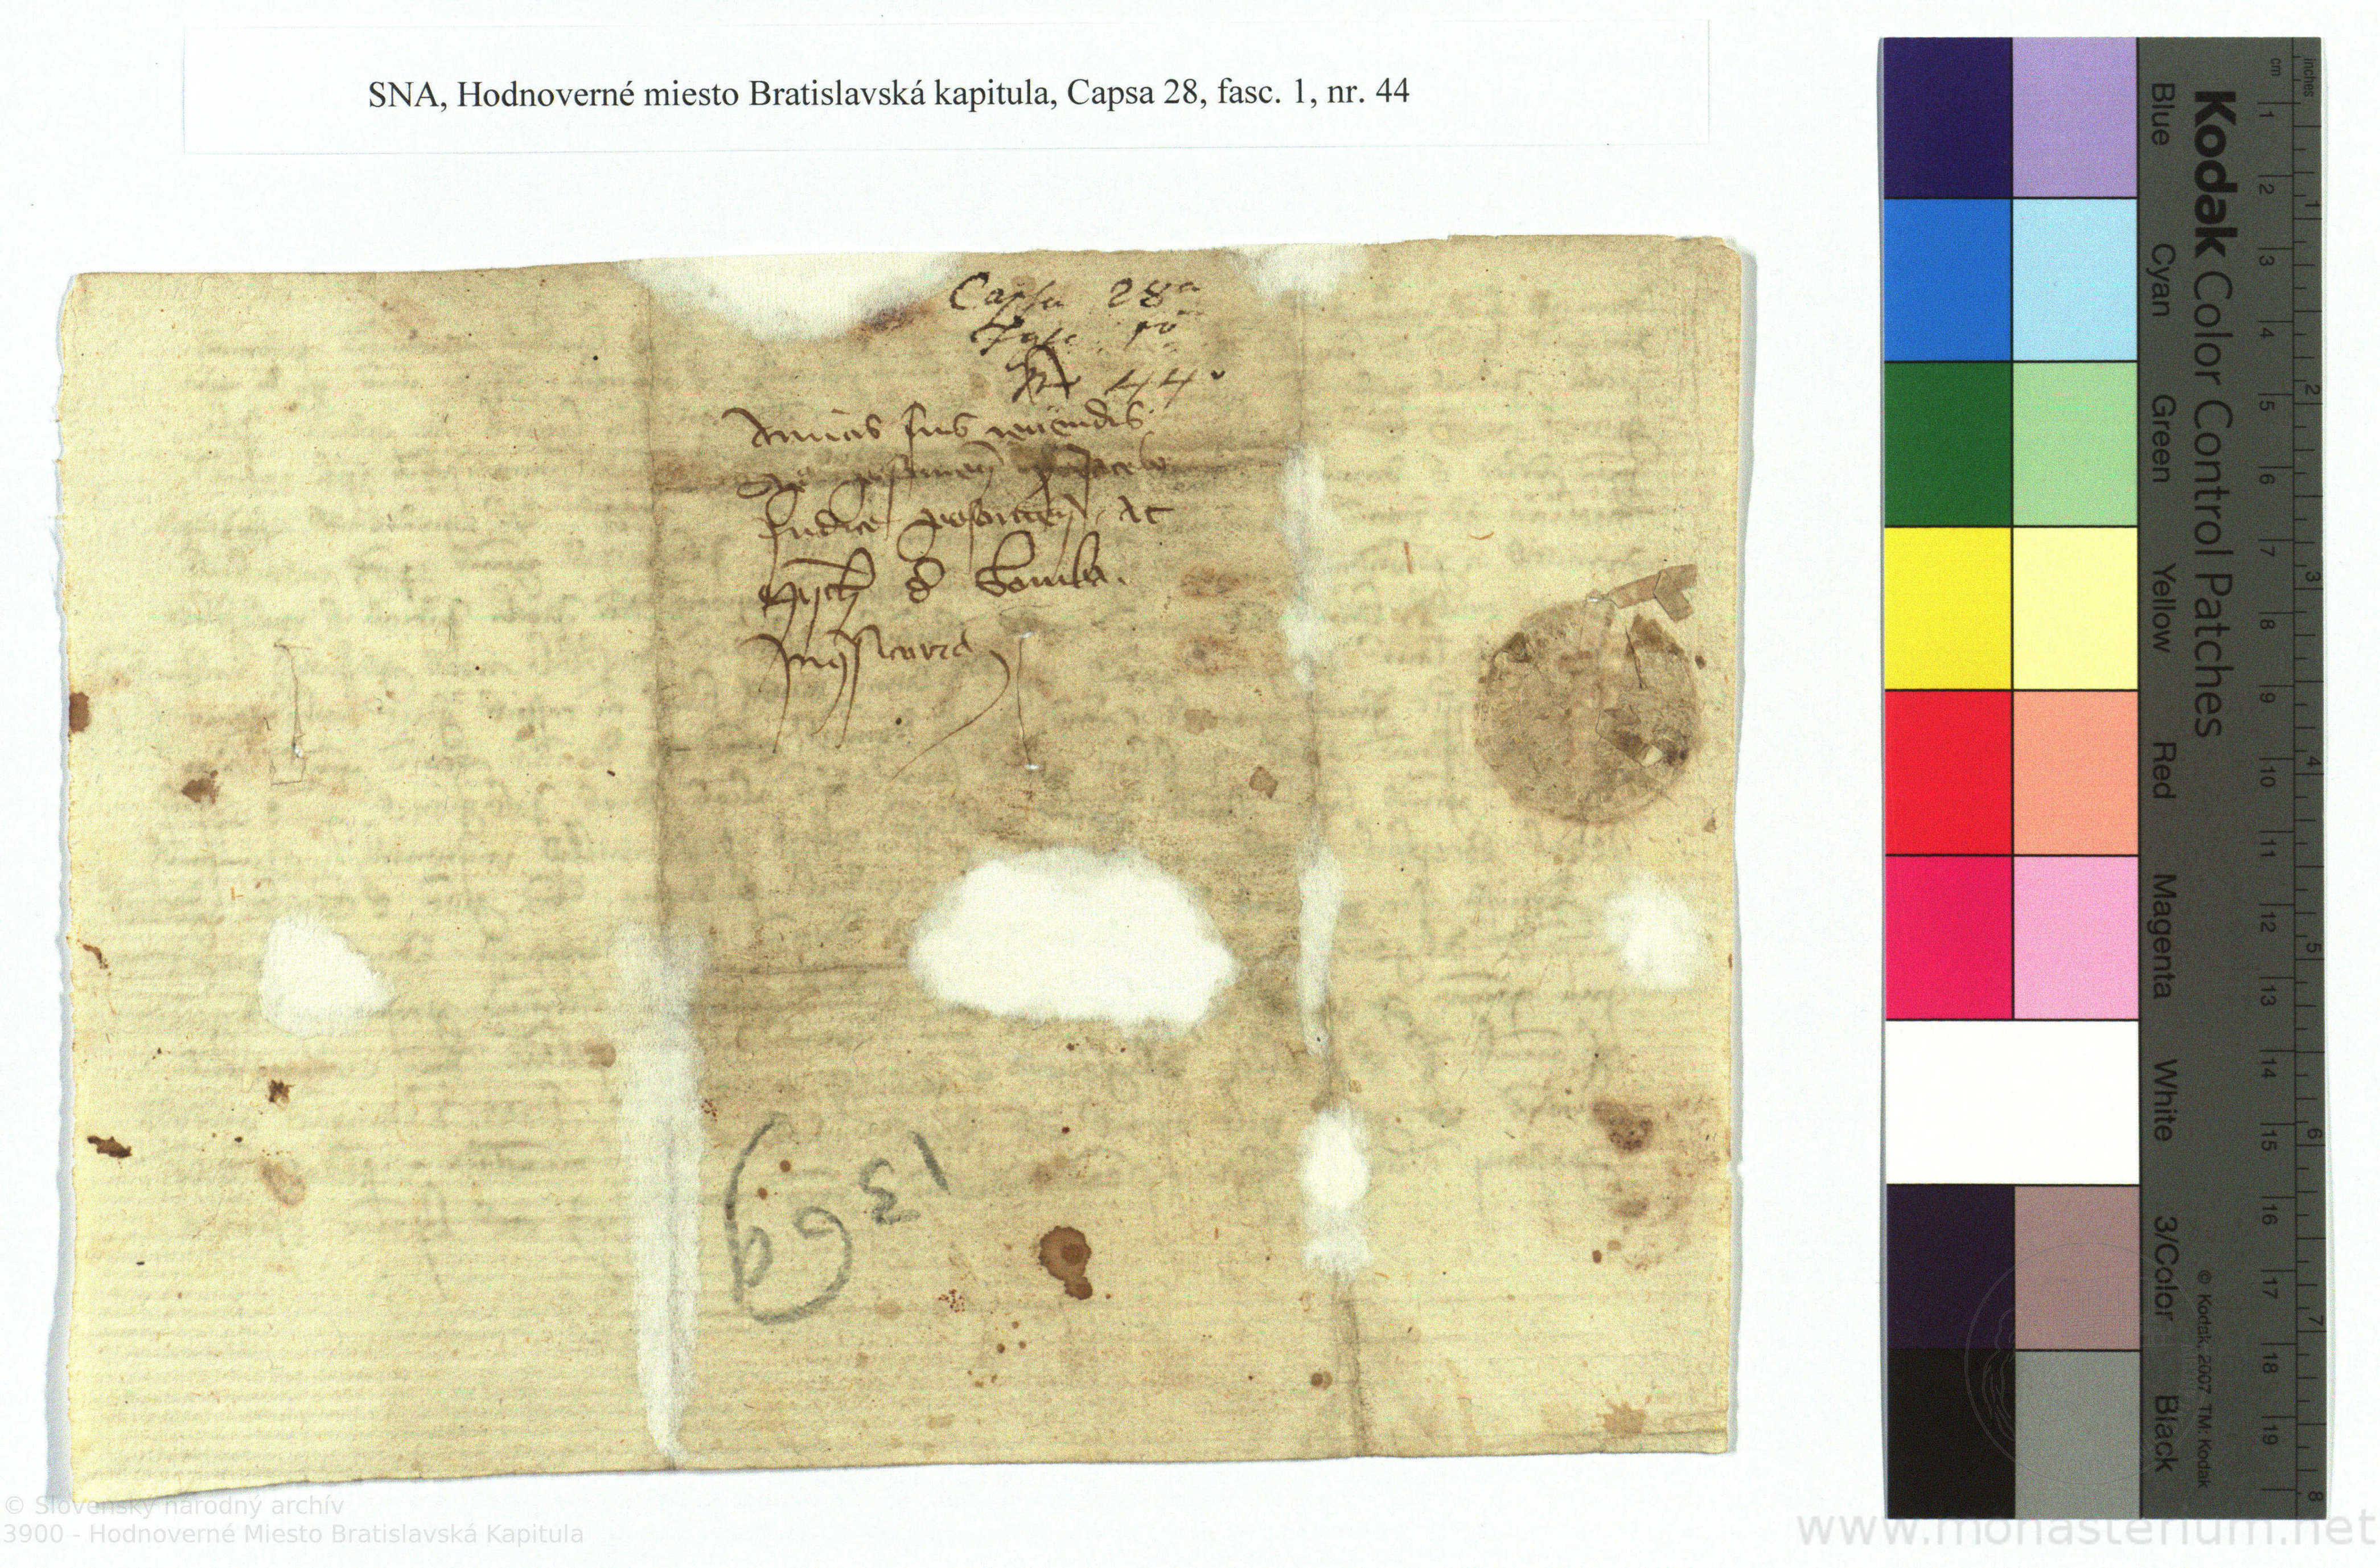 SNA, Hodnoverné miesto Bratislavská kapitula, Capsa 28, fasc. 1, nr. 44
Capsa 28a
Fasc. 1o
N 44
Amicis suis reuendis
Jacobo
Judice posonien ac
de
1369
Kodak Color Control Patches
Blue Cyan Green Yellow Red Magenta White 3/Color Black
© Kodak, 2007 TM: Kodak
cm 1 2 3 4 5 6 7 8 9 10 11 12 13 14 15 16 17 18 19
inches 1 2 3 4 5 6 7 8
© Slovenský národný archív
3900 - Hodnoverné Miesto Bratislavská Kapitula
www.monasterium.net